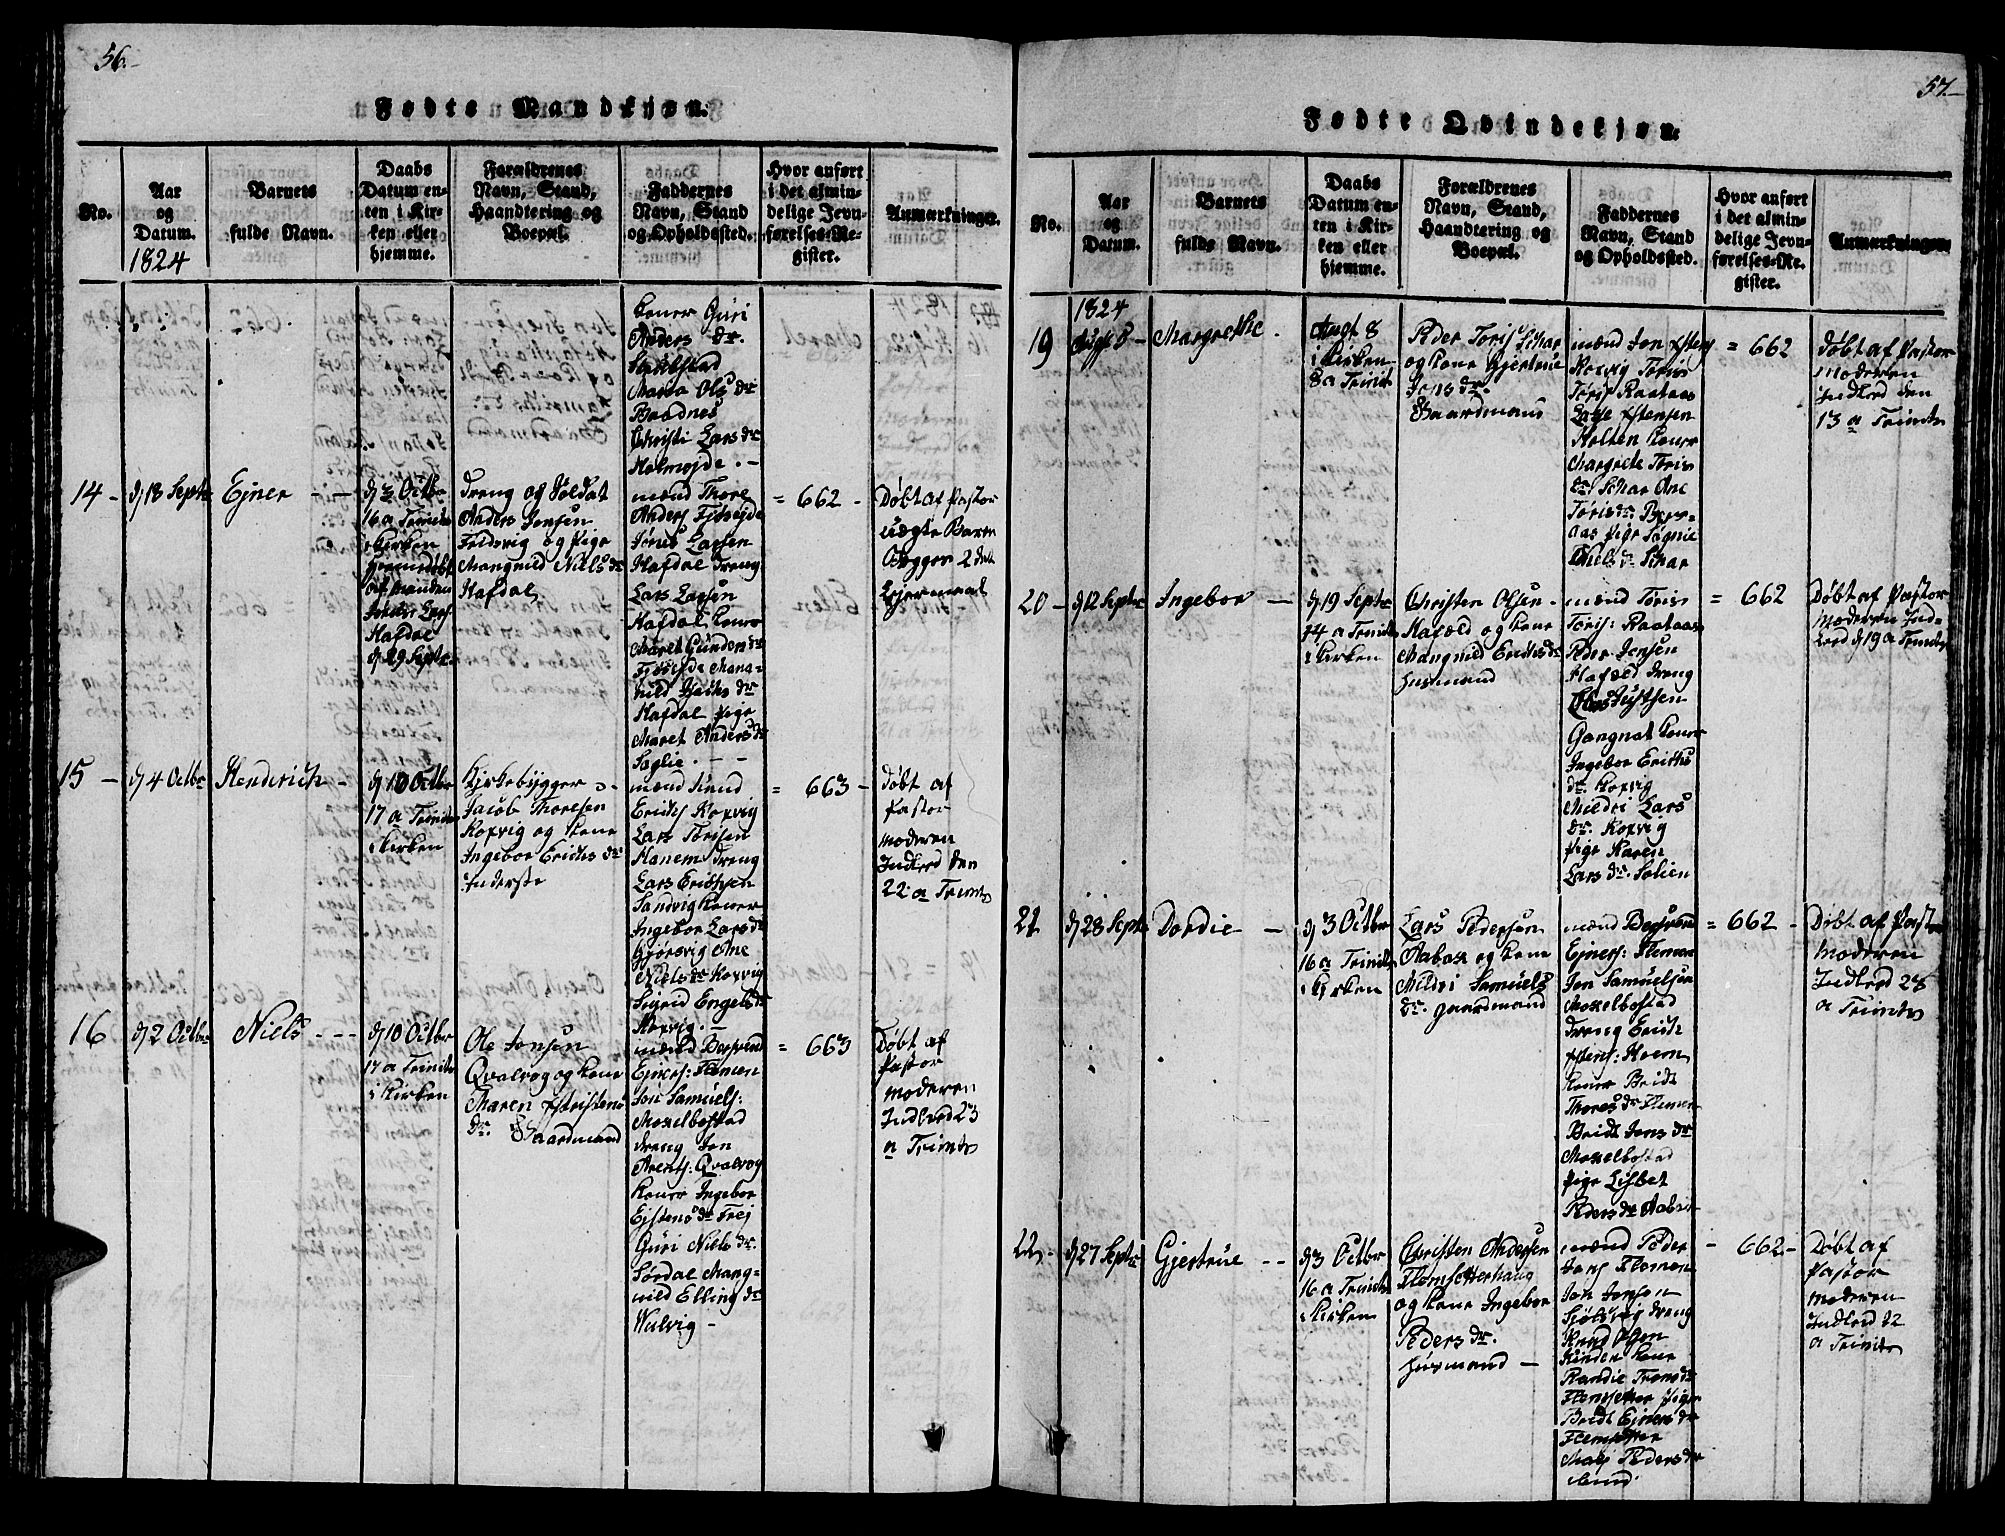 56.
Fødte Mandkjøn.
No.
Aar
og
Datum.
1824
Barnets
fulde Navn.
Daabs
Datum en-
ten i Kir-
ken eller
hjemme.
Forældrenes
Navn, Stand,
Haandtering og
Boepæl.
Faddernes
Navn, Stand
og Opholdssted.
Hvor anført
i det almin-
delige Jevn-
førelses-Re-
gister.
Anmærkninger.
koner Guri
Anders dr.
Marta Ols dr
Baadnes
Christi Lars dr
Holmøjde. -
14 -
d 18 Septr
Ejner - -
d 3 Octbr
16 a Trinit
i Kirken
Hjemmedøbt
af manden
Hafdal
d 29 Septr
dreng og Soldat
Anders Jonsen
og Pige
Mangnild Niels dr
Hafdal
mænd Thore
Jones Lassen
Hafdal dreng
Lars Lassen
Hafdal koner
Maret Gunder dr
Hafdal pige
Maret Anders dr
= 662 -
Døbt af Pastor
uægte Barn
2 det
Lejermaal
15 -
d 4 Octbr
Henderich -
d 10 Octbr
17 a Trinit
i Kirken
Kirkebygger
Jacob Thoresen
Korvig og kone
Ingebor Erichs dr
Inderste
mænd
Erichs Korvig
Lars Torisen
Hanem dreng
Lars Erichsen
Sandvig koner
Ingebor Lars dr
Gjørsvig Ane
Niels dr Korvig
Sigrid Engels dr
Korvig. -
= 663 -
Døbt af
Pastor
moderen
Indled den
22 a Trinits
16
d 2 Octbr
Niels - - -
d 10 Octbr
17 a Trinit
i Kirken
Ole Jonsen
Qvalvog og kone
Maren
dr. Gaardmand
mænd
Ejners: Flemen
Jon Samuels:
Moxelbostad
dreng Jon
Arents: Qvalvog
koner Ingebor
Ejstens dr Trej
Guri Niels dr.
Sørdal Mang-
nild Elling dr
Wulvig -
= 663
Døbt af
Pastor
moderen
Indled 23
a Trinits
57.
Fødte Qvindekjøn.
No.
Aar
og
Datum.
Barnets
fulde Navn.
Daabs
Datum en-
ten i Kir-
ken eller
hjemme.
Forældrenes
Navn, Stand,
Haandtering og
Boepæl.
Faddernes
Navn, Stand
og Opholdssted.
Hvor anført
i det almin-
delige Jevn-
førelses-Re-
gister.
Anmærkninger.
1824
19
Augt 8 -
Margrethe
Augt 8
i Kirken
8 a Trinit
Peder Toris Schar
og kone Gjertrue
Jens dr.
Gaardmand
mænd Jon
Korvig Toris
Toris: Raataas
Lasse Estensen
Holten koner
Margrete Toris
dr Schar Ane
Toris dr.
aas pige
Niels dr Schar
= 662
Døbt af Pastor
Moderen
Indled den
13 a Trinits
20 -
d 12 Septr
Ingebor -
d 19 Septr
14 a Trinit
i Kirken
Christen Olsen -
Hafæld og kone
Mangnild Erichs dr
Husmand
mænd Toris
Toris: Raataas
Peder Jensen
Hafæld dreng
Gangnat koner
Ingebor Erichs
dr. Korvig
Mildri Lars
dr. Korvig
pige Karen
Lars dr. Solien
= 662
Døbt af Pastor
Moderen Ind-
led d 19 a Trinits
21
d 28 Septr
Dordie -
d 3 Octbr
16 a Trinit
i Kirken
Lars Pedersen
og kone
Mildri Samuels
dr. gaardmand
mænd
Ejners: Flemen
Jon Samuelsen
Moxelbostad
dreng Erich
Estens: Hoem
koner Bridt
Thores dr Flemen
Bridt Jons dr
Moxelbostad
pige Lisbet
Peders dr
= 662 -
Døbt af Pastor
Moderen
Indled 23
a Trinits
22 -
d 27 Septr
Gjertrue - -
d 3 Octbr
16 a Trinit
i Kirken
Christen Andersen
Flemsetterhaug
og kone Ingebor
Peders dr.
Husmand -
mænd Peder
Jons Flemen
Jon Jonsen
Sjølsvig dreng
Knud Olsen
Kinden kone
Randie Trons dr
Flemsetter pige
Bridt Ejners dr
Flemsetter
Peders dr
- 662 -
Døbt af
Pastor
Moderen
Indled 22
a Trinits